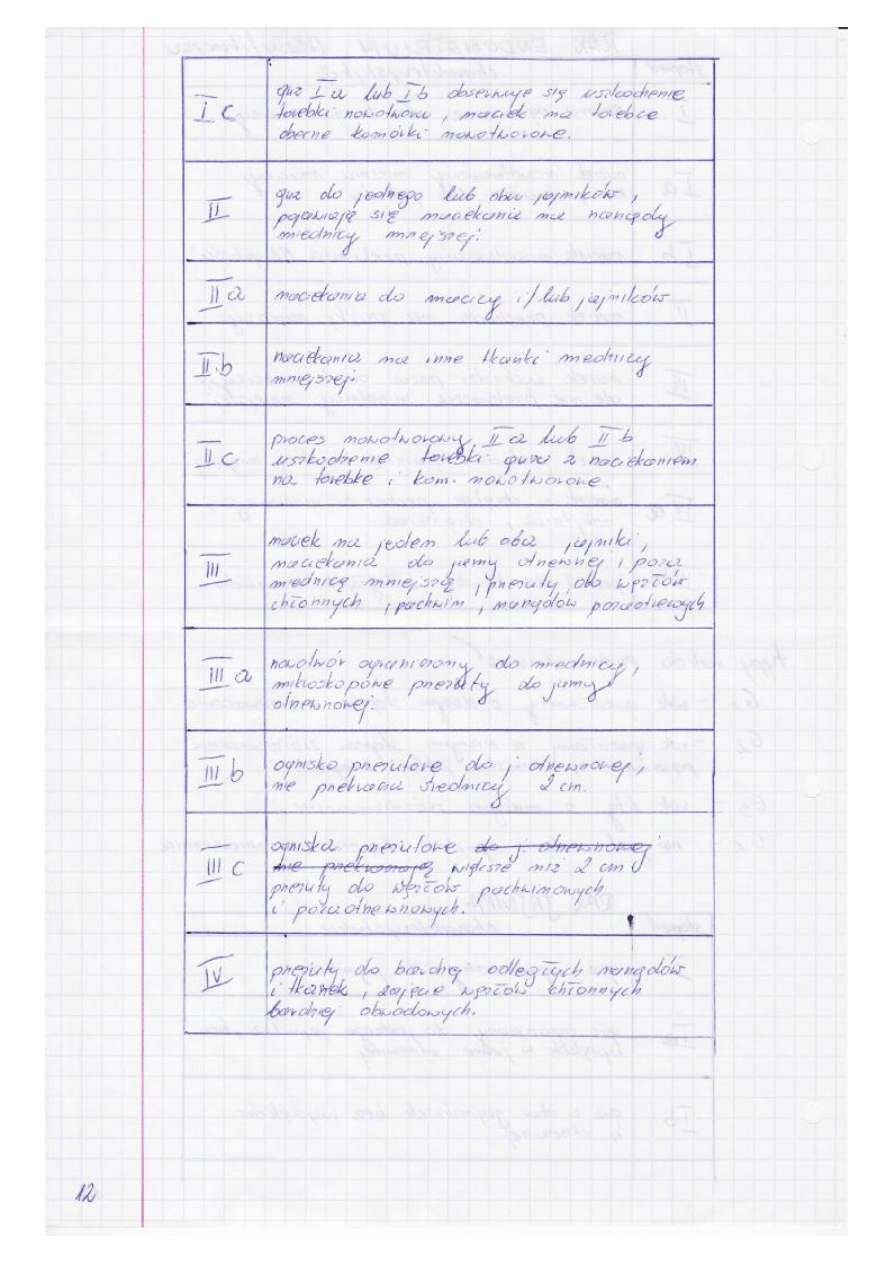 I c
guz I a lub I b obserwuje się uszkodzenie
torebki nowotworu, naciek na torebce
obecne komórki nowotworowe.
II
guz do jednego lub obu jajników,
pojawiają się naciekanie na narządy
miednicy mniejszej.
II a
naciekania do macicy i/lub jajników
II b
naciekania na inne tkanki miednicy
mniejszej.
II c
proces nowotworowy II a lub II b
uszkodzenie torebki guza z naciekaniem
na torebke i kom. nowotworowe.
III
naciek na jeden lub oba jajniki,
naciekania do jamy otrzewnej i poza
miednicę mniejszą, przerzuty do węzłów
chłonnych, pachwin, narządów pozaotrzewowych
III a
nowotwór ograniczony do miednicy,
mikroskopowe przerzuty do jamy
otrzewnowej.
III b
ognisko przerzutowe do j otrzewnowej,
nie przekracza średnicy 2 cm.
III c
ogniska przerzutowe do j. otrzewnowej
nie przekraczają większe niż 2 cm
przerzuty do węzłów pachwinowych
i pozaotrzewnowych.
IV
przerzuty do bardziej odległych narządów
i tkanek, zajęcie węzłów chłonnych
bardziej obwodowych.
12